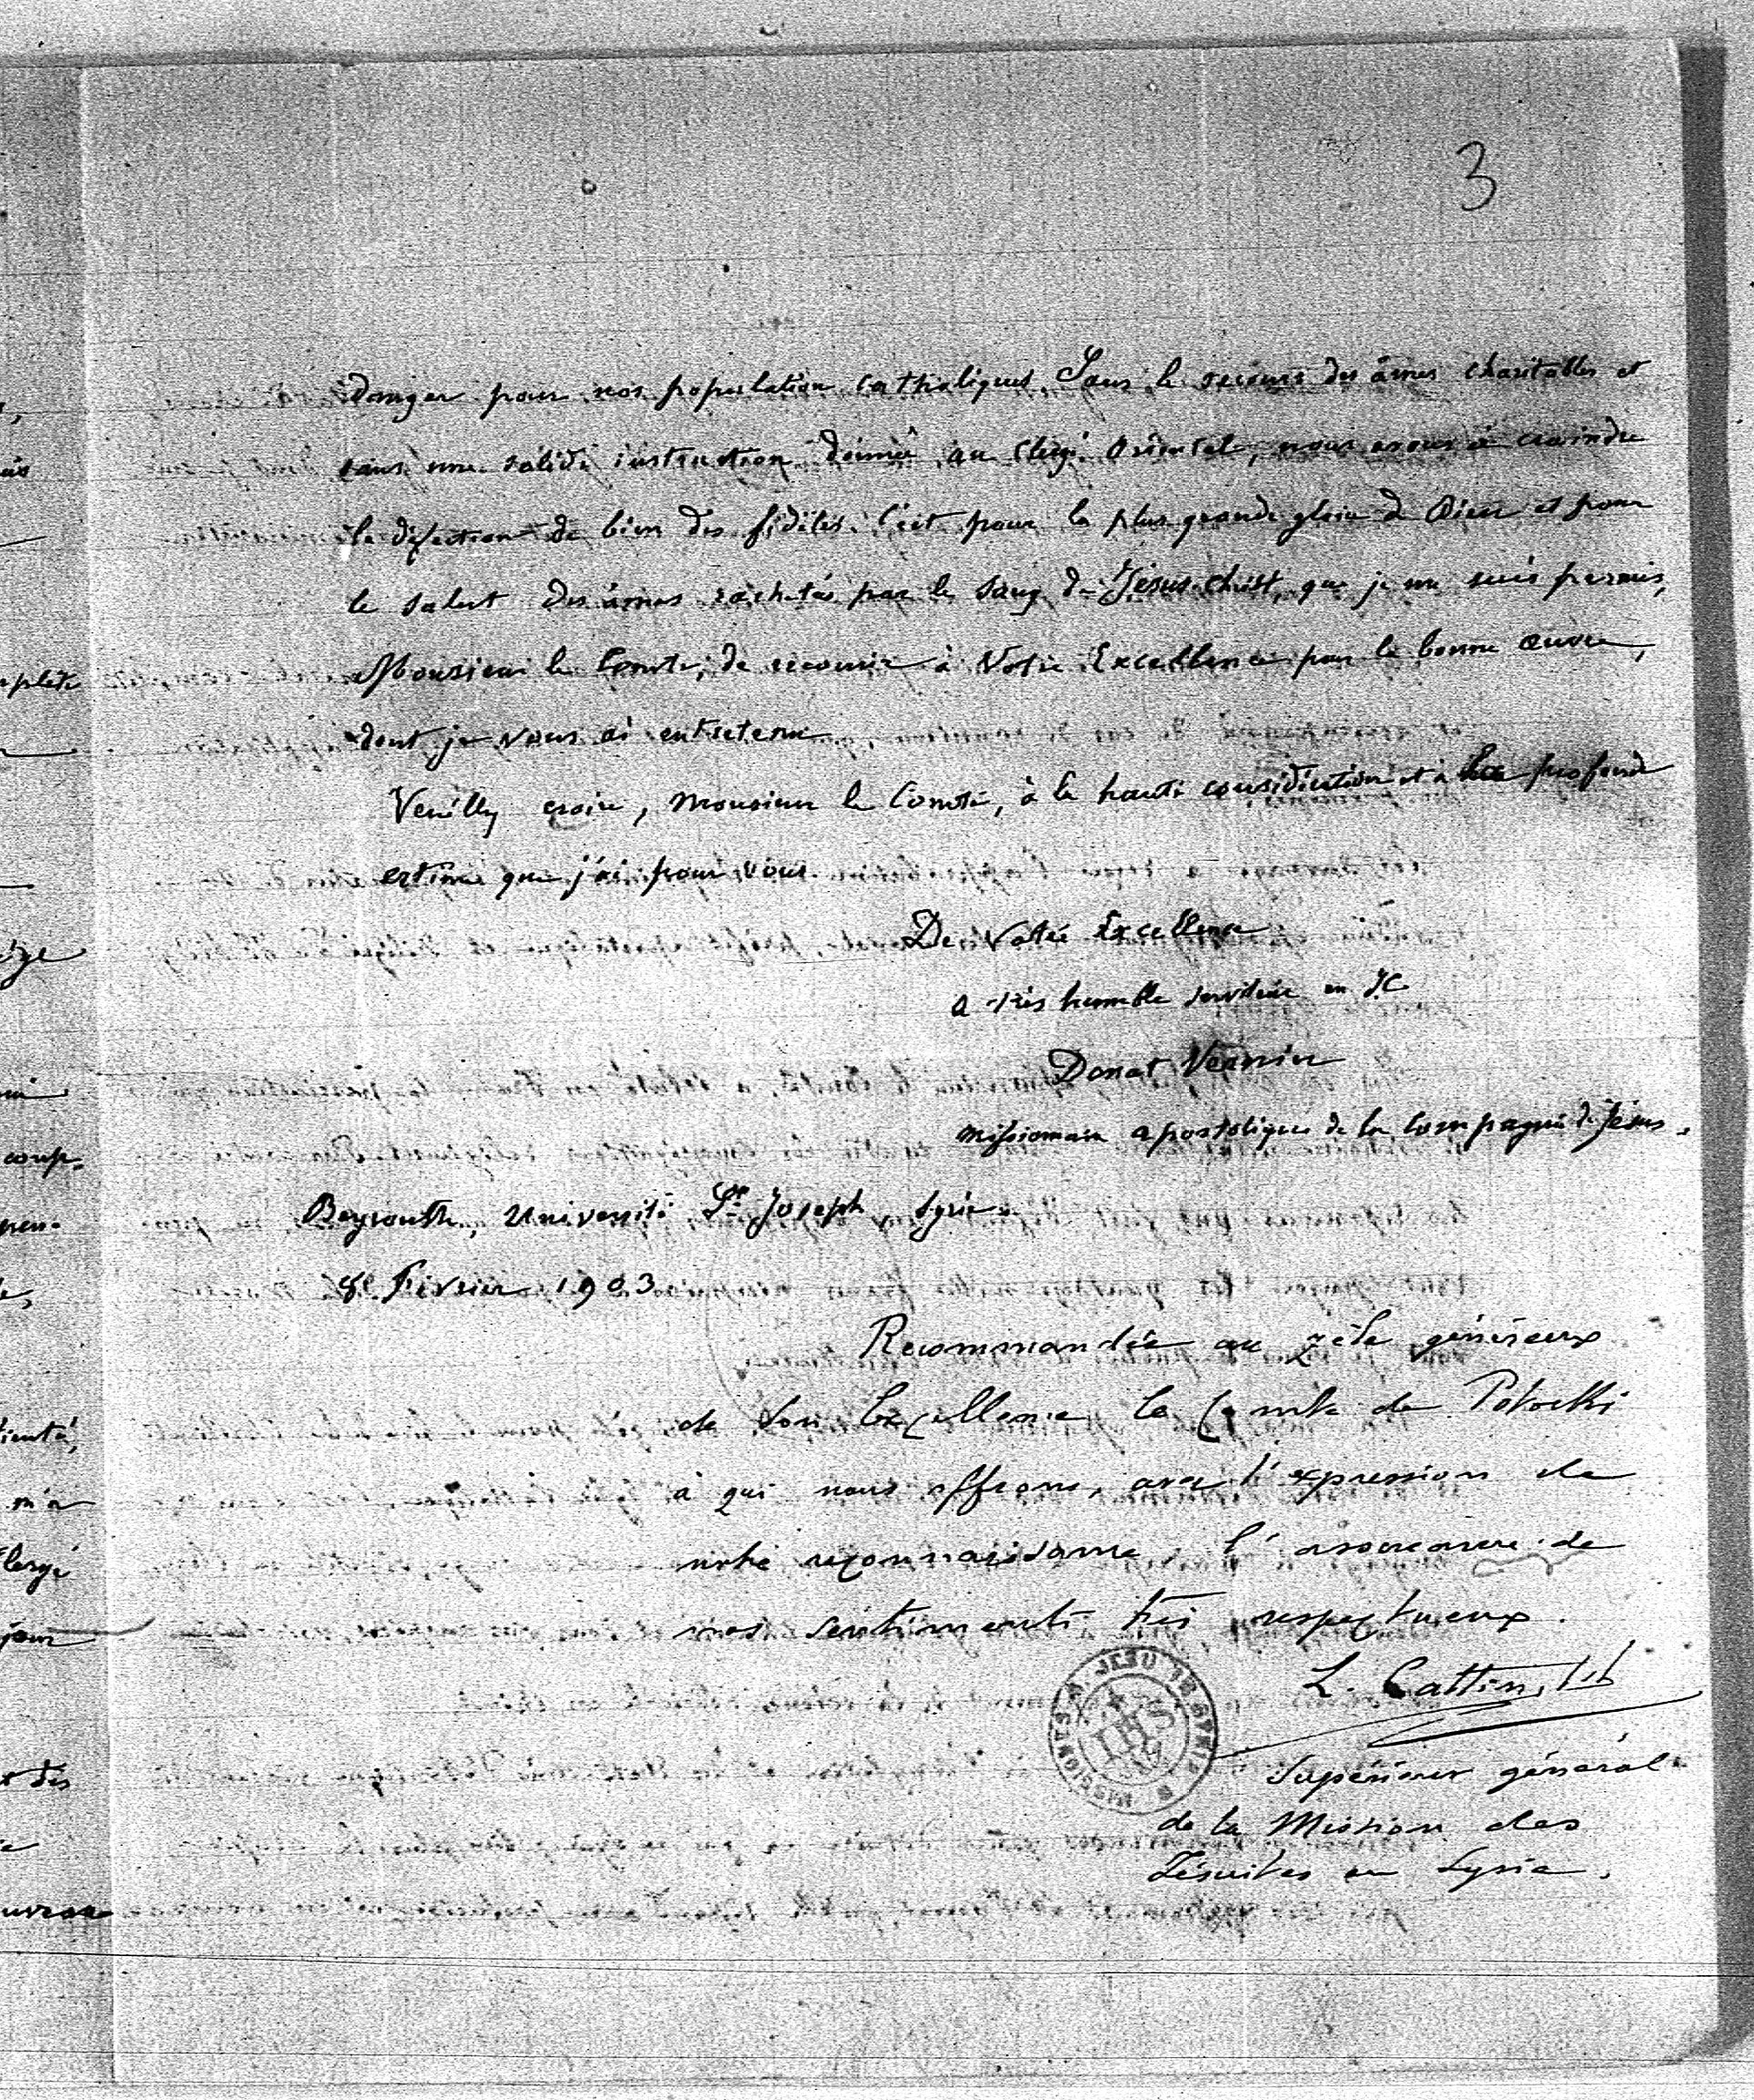 3
danger pour nos population catholiques. Sans le secours des âmes charitables et
sans une solide instruction donnée au clergé oriental, nous avons à craindre
la défection de bien des fidèles. C'est pour la plus grande gloire de Dieu et pour
le salut des âmes rachetées par le sang de Jésus-Christ, que je me suis permis,
Monsieur le Comte, de recourir à Votre Excellence pour la bonne œuvre,
dont je vous ai entretenu
Veuillez croire, monsieur le Comte, à la haute considération et à la profonde
estime que j'ai pour vous
De Votre Excellence
a très humble serviteur en J.C.
Donat Vernier
Missionnaire apostolique de la Compagnie de Jésus.
Beyrouth, Université St Joseph, Syrie.
8 Février 1903
Recommandée au zèle généreux
de Son Excellence le Comte de Potocki
à qui nous offrons, avec l'expression de
notre reconnaissance, l'assurance de
nos sentiments très respectueux.
L. Cattin,
MISSIONIS S. JESU IN SYRIA
IHS
Supérieur général
de la Mission des
Jésuites en Syrie.